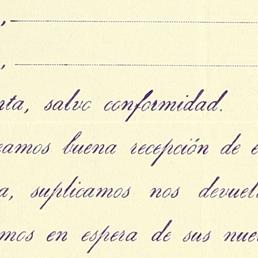 ,
,
nta, salvo conformidad.
eamos buena recepción de e
a, suplicamos nos devuel
mos en espera de sus nue